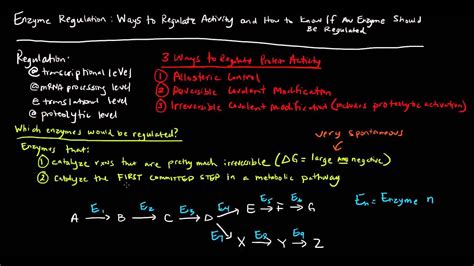 Enzyme Regulation: Ways to Regulate Activity and How to Know If An Enzyme Should
Be Regulated
Regulation:
@ transcriptional level
@ mRNA processing level
@ translational level
@ proteolytic level
3 Ways to Regulate Protein Activity
① Allosteric Control
② Reversible Covalent Modification
③ Irreversible Covalent modification (includes proteolytic activation)
Which enzymes would be regulated?
Enzymes that:
very spontaneous
① catalyze rxns that are pretty much irreversible (ΔG = large and negative)
② catalyze the FIRST COMMITTED STEP in a metabolic pathway
A →E₁ B →E₂ C →E₃ D →E₄ E →E₅ F →E₆ G
Eₙ = Enzyme n
→E₇ X →E₈ Y →E₉ Z